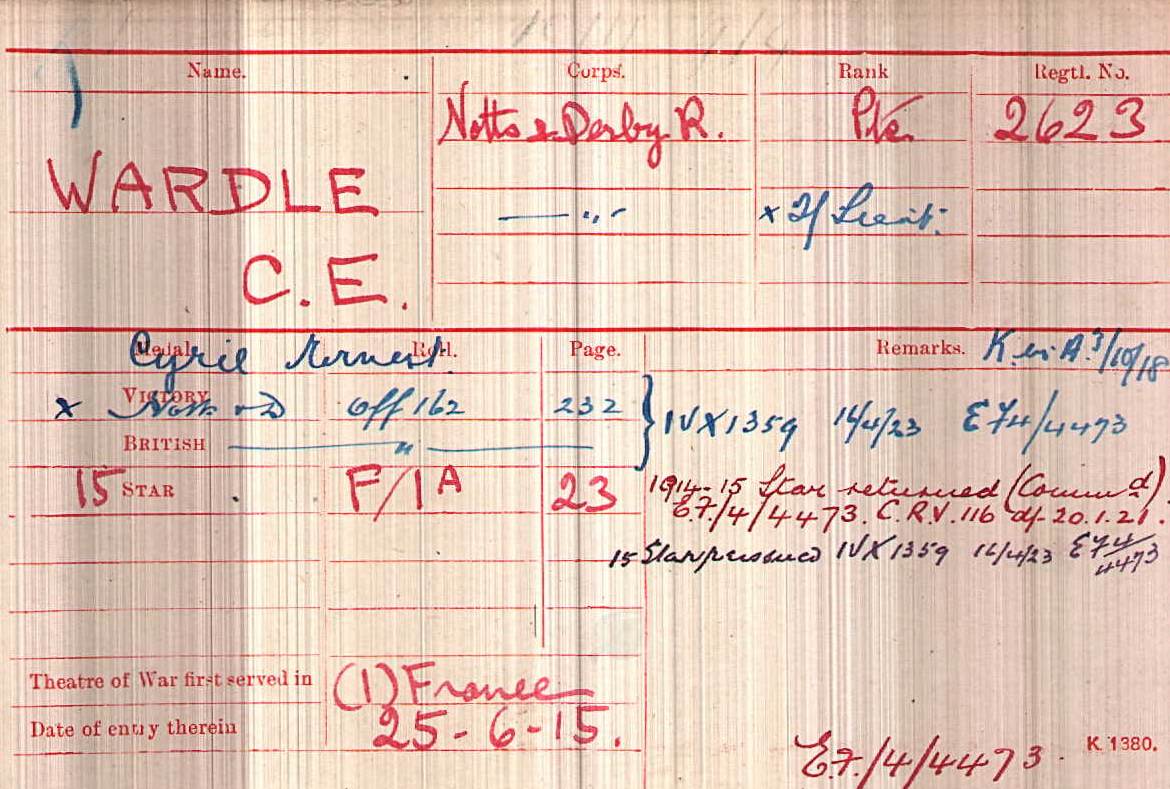 Name. Corps. Rank Regtl. No.
Notts & Derby R. Pte. 2623
WARDLE
— " — x T/Lieut.
C. E.
Medal. Roll. Page. Remarks. K in A. 3/10/18
Cyril Ernest
VICTORY
x Notts & D Off 162 232 } IVX1359 16/4/23 E74/4473
BRITISH — " —
15 STAR F/1A 23 1914-15 Star returned (Commd).
E.7./4/4473. C.R.V. 11b d/- 20.1.21.
15 Star reissued IVX1359 16/4/23 E74/4473
Theatre of War first served in (1) France
Date of entry therein 25-6-15.
E.7./4/4473. K. 1380.